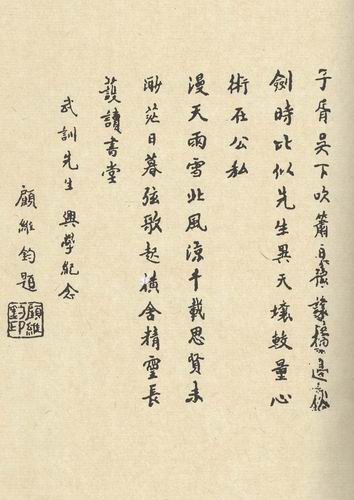 子胥吳下吹簫日豫讓橋邊
劍時比似先生異天壤較量心
術在公私
漫天雨雪北風涼千載思賢未
渺茫日暮弦歌起橫舍精靈長
護讀書堂
武訓先生 興學紀念
顧維鈞題
顧維鈞印